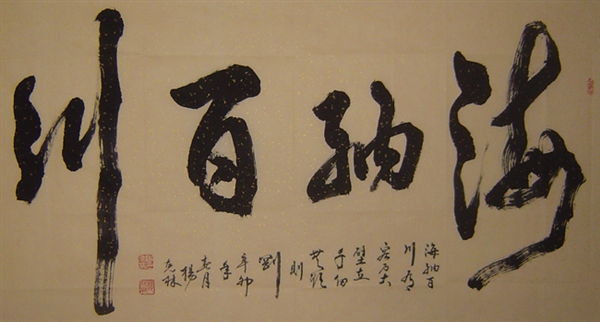 海納百川
海納百
川有
容乃大
壁立
千仞
無欲
則
剛
辛卯
年
春月
楊
林